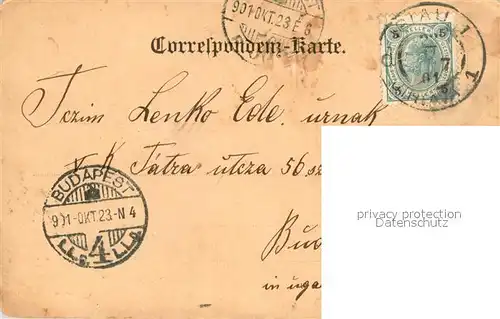 901·OKT.23·E 6
TAU 1
Correspondenz-Karte.
5 5
Tczim Lenko Ede urnak
V. K Tátra utcza 56 sz
BUDAPEST
901·OKT.23·N 4
4
Bu
in uga
privacy protection
Datenschutz